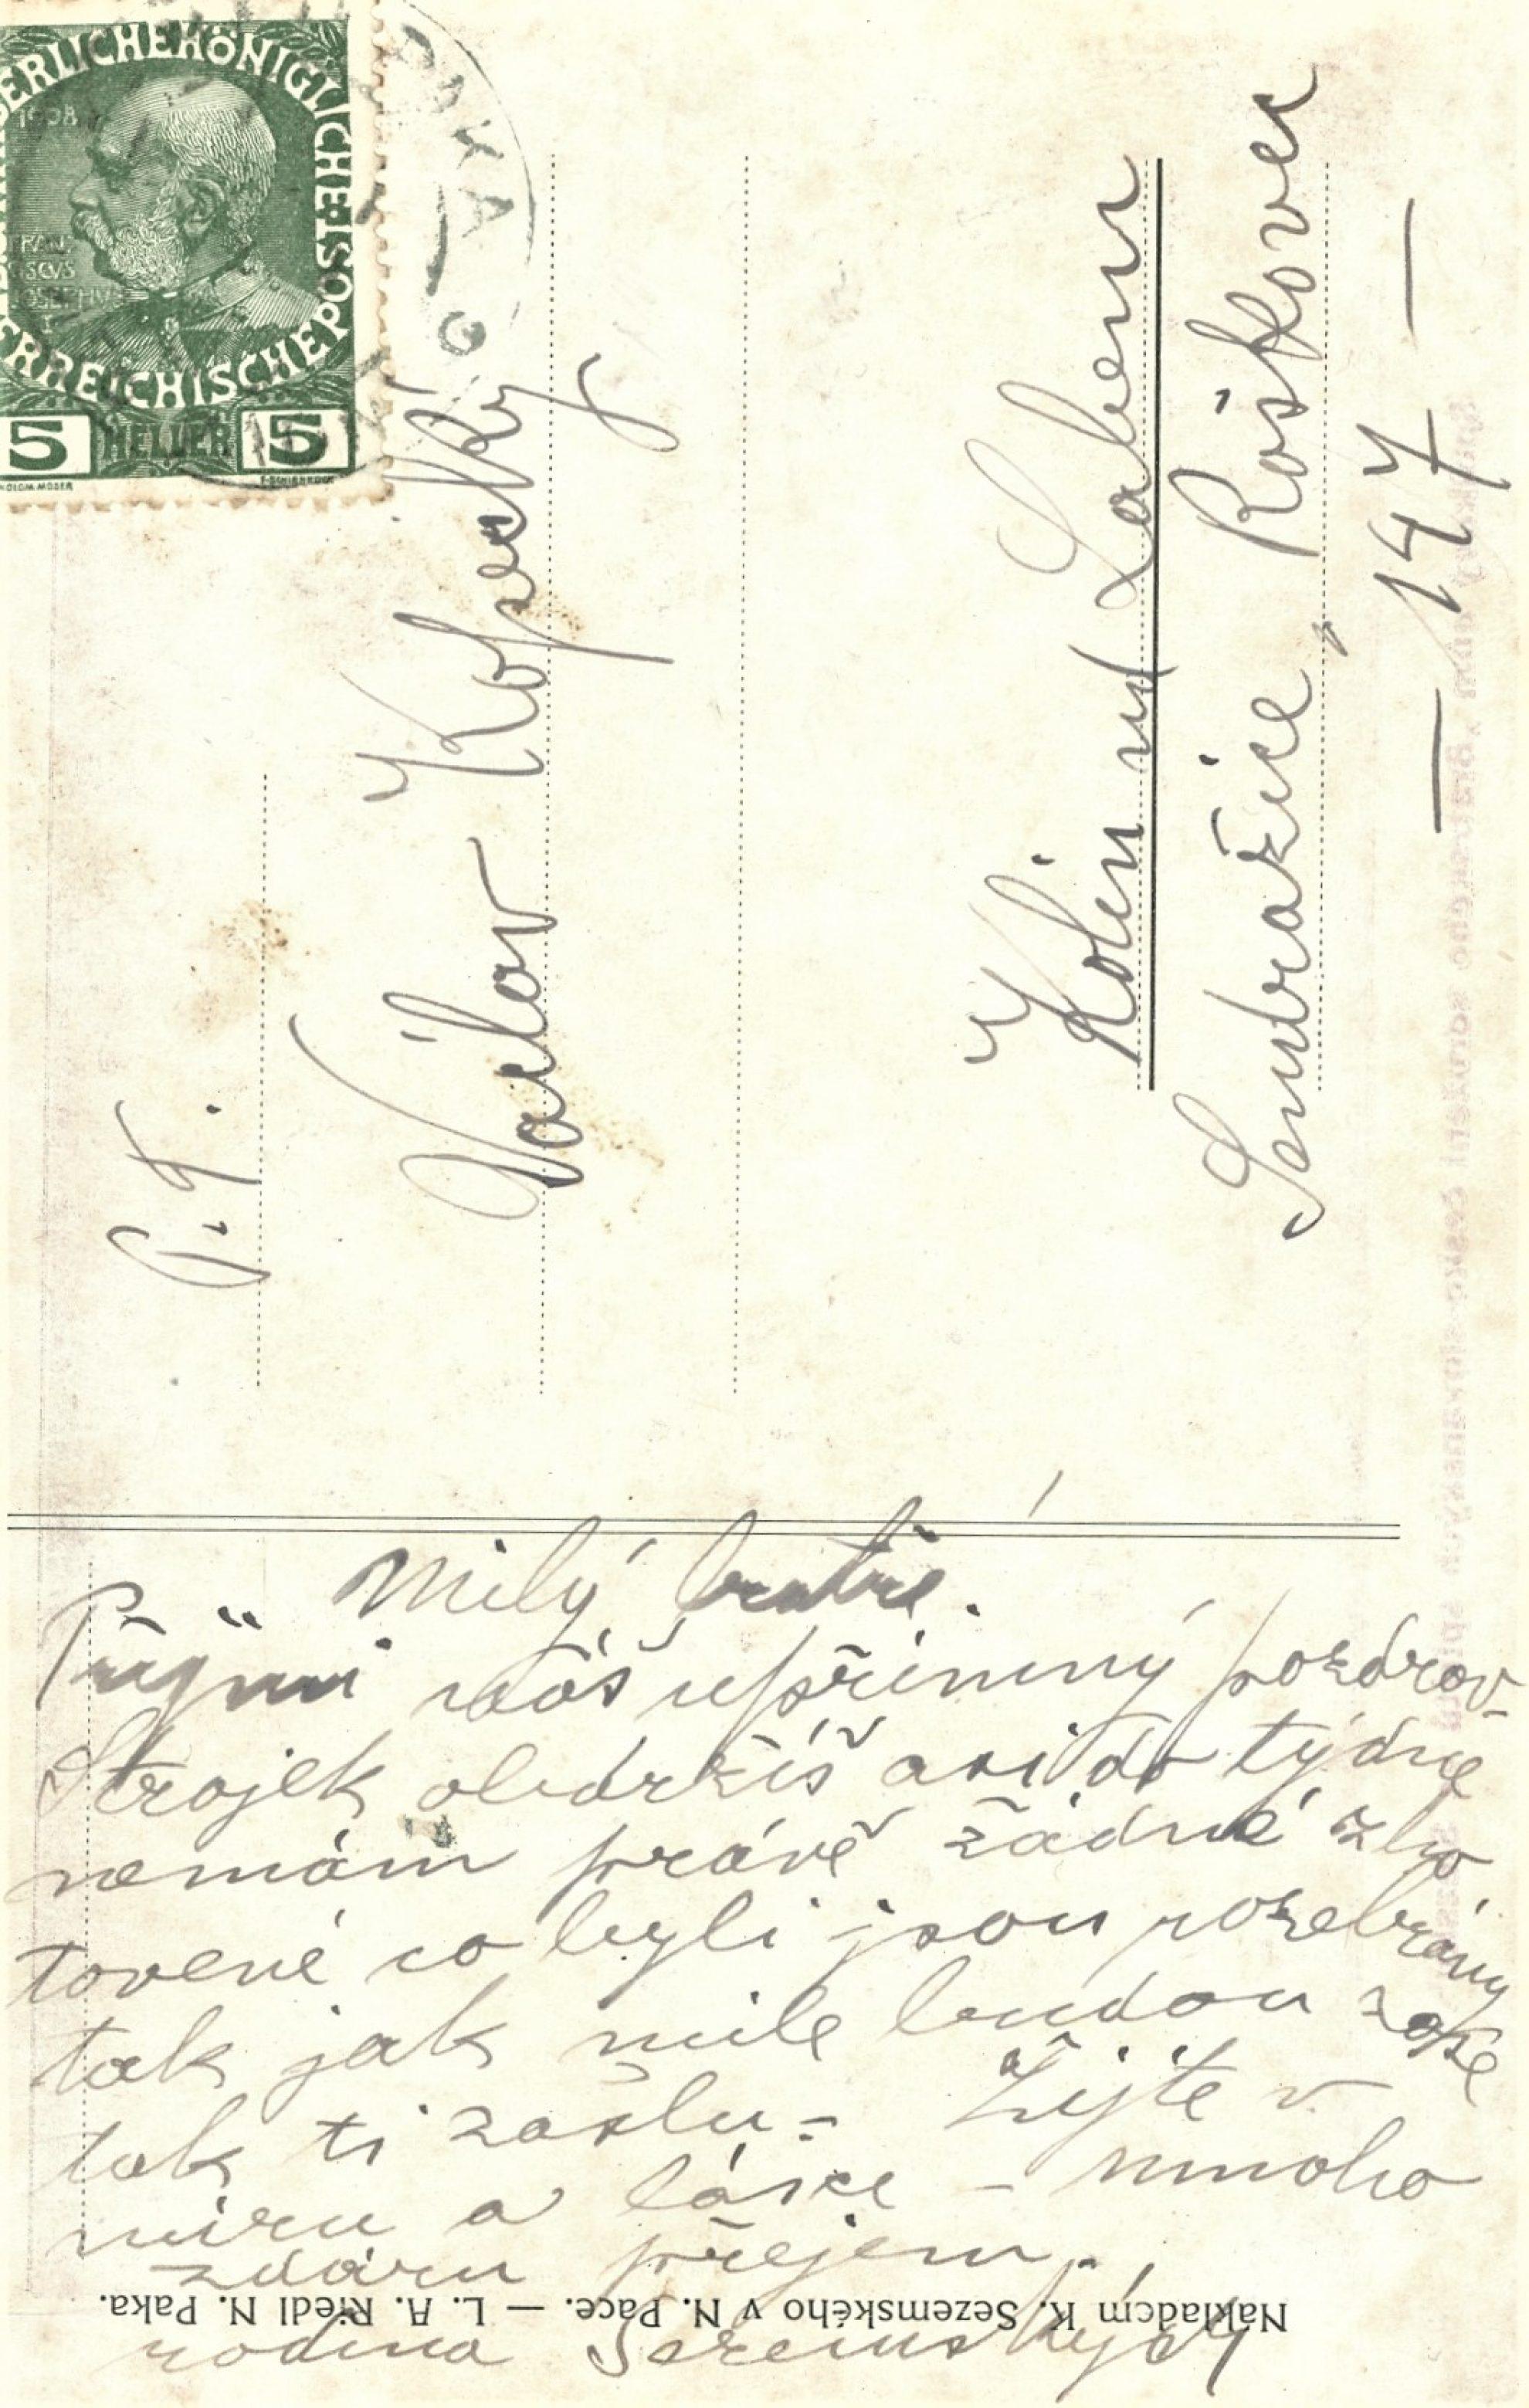 KAISERLICHE KÖNIGLICHE
ÖSTERREICHISCHE POST
1908
FRAN
CISCVS
IOSEPHVS
I
5 HELLER 5
PAKA
P. T.
Václav Kopecký
Kolín nd Labem
Sendražice, Rošťkovec
— 147 —
Milý bratře.
Přijmi náš upřímný pozdrav
Strojek obdržíš asi do týdne
nemám právě žádné zho
tovené co byli jsou rozebrány
tak jak mile budou zase
tak ti zašlu - Žijte v
míru a lásce - mnoho
zdaru přejem
rodina
Nákladem K. Sezemského v N. Pace. — L. A. Riedl N. Paka.